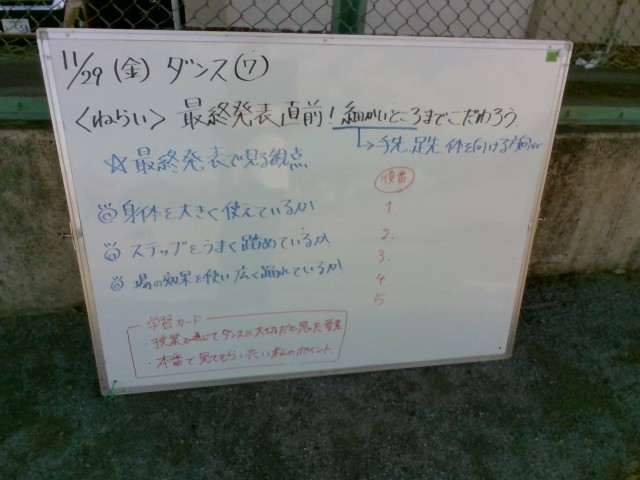 11/29 (金) ダンス⑦
〈ねらい〉 最終発表直前! 細かいところまでこだわろう
→手先 足先 体を向ける方向など
☆最終発表で見る観点
順番
◎身体を大きく使えているか
1.
◎ステップをうまく踏めているか
2.
3.
◎場の効果を使い広く踊れているか
4
5
学習カード
・授業を通してダンスに大切だと思った要素
・本番で見てもらいたい私のポイント